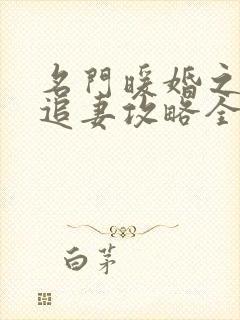 名門暖婚之
追妻攻略全
白茅